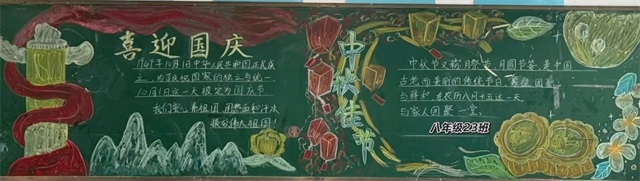 喜迎国庆
1949年10月1日中华人民共和国正式成
立，为了庆祝国家的独立与统一
10月1日这一天被定为国庆节
我们要心系祖国
祝伟大祖国！
中秋佳节
中秋节又称月祭节、月圆节等，是中国
古老而美丽的传统节日
与祥和，在农历八月十五这一天
与家人团聚一堂
八年级23班